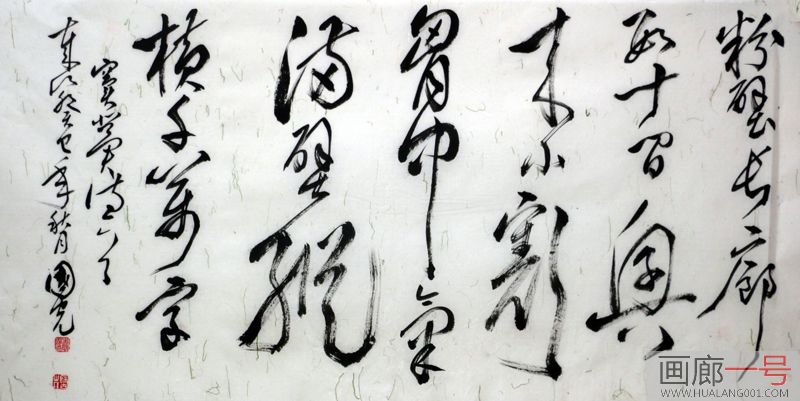 粉壁長廊
數十間興
來小豁
胸中氣
滿壁縱
橫千萬字
竇冀詩
癸巳年秋月 國光
画廊一号
WWW.HUALANG001.COM